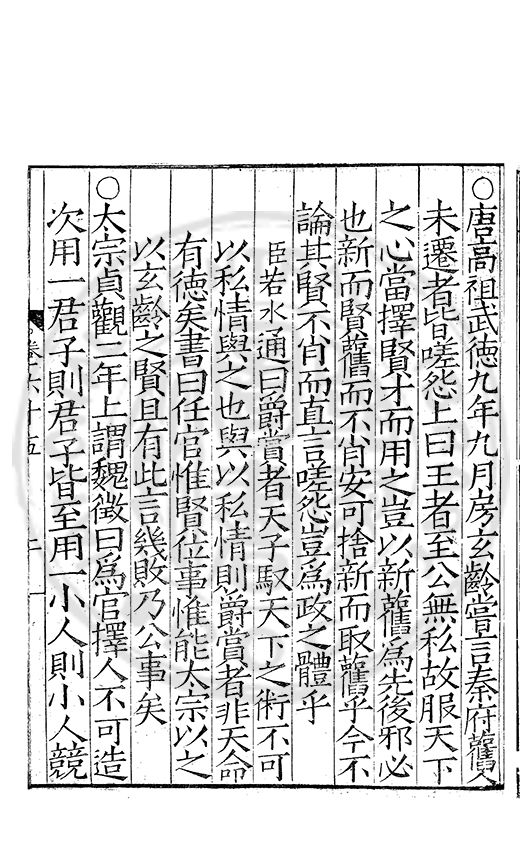 ○唐高祖武德九年九月房玄齡嘗言秦府舊人
未遷者皆嗟怨上曰王者至公無私故服天下
之心當擇賢才而用之豈以新舊為先後邪必
也新而賢舊而不肖安可捨新而取舊乎今不
論其賢不肖而直言嗟怨豈為政之體乎
臣若水通曰爵賞者天子馭天下之術不可
以私情與之也與以私情則爵賞者非天命
有德矣書曰任官惟賢位事惟能太宗以之
以玄齡之賢且有此言幾敗乃公事矣
○太宗貞觀二年上謂魏徵曰為官擇人不可造
次用一君子則君子皆至用一小人則小人競
卷六十五